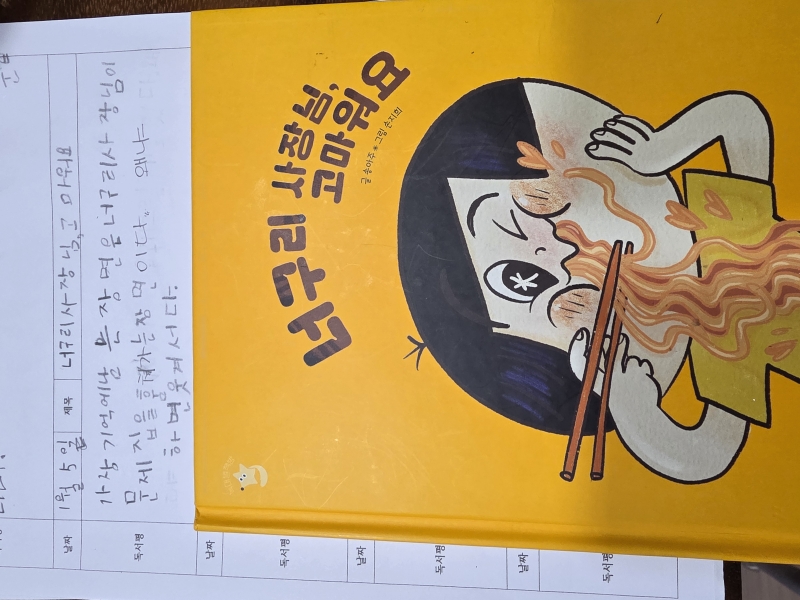 날짜
1월 5일
제목
너구리 사장님, 고마워요
독서평
가장 기억에 남는 장면은 너구리 사장님이
문제집을 훔쳐가는 장면이다. 왜냐
하면 웃겨서다.
날짜
독서평
날짜
독서평
날짜
독서평
너구리 사장님,
고마워요
글 송아주 * 그림 손지희